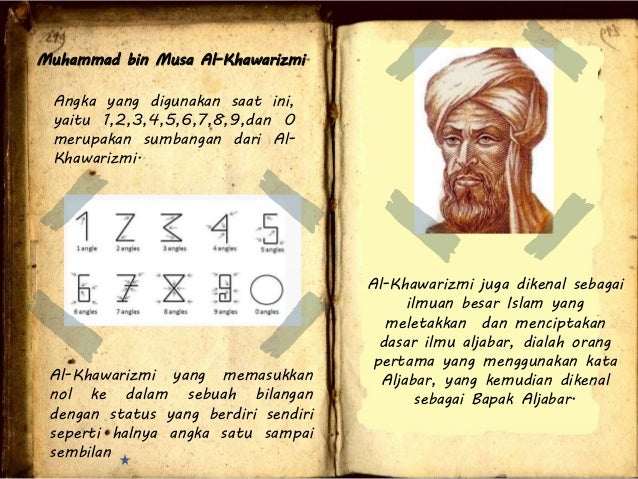 Muhammad bin Musa Al-Khawarizmi
Angka yang digunakan saat ini,
yaitu 1,2,3,4,5,6,7,8,9,dan 0
merupakan sumbangan dari Al-
Khawarizmi.
1 2 3 4 5
1 angle 2 angles 3 angles 4 angles 5 angles
6 7 8 9 0
6 angles 7 angles 8 angles 9 angles 0 angles
Al-Khawarizmi yang memasukkan
nol ke dalam sebuah bilangan
dengan status yang berdiri sendiri
seperti halnya angka satu sampai
sembilan
Al-Khawarizmi juga dikenal sebagai
ilmuan besar Islam yang
meletakkan dan menciptakan
dasar ilmu aljabar, dialah orang
pertama yang menggunakan kata
Aljabar, yang kemudian dikenal
sebagai Bapak Aljabar.